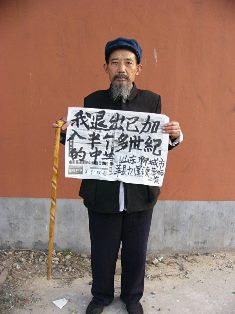 我退出已加
入半个多世紀
的中共
山东聊城市